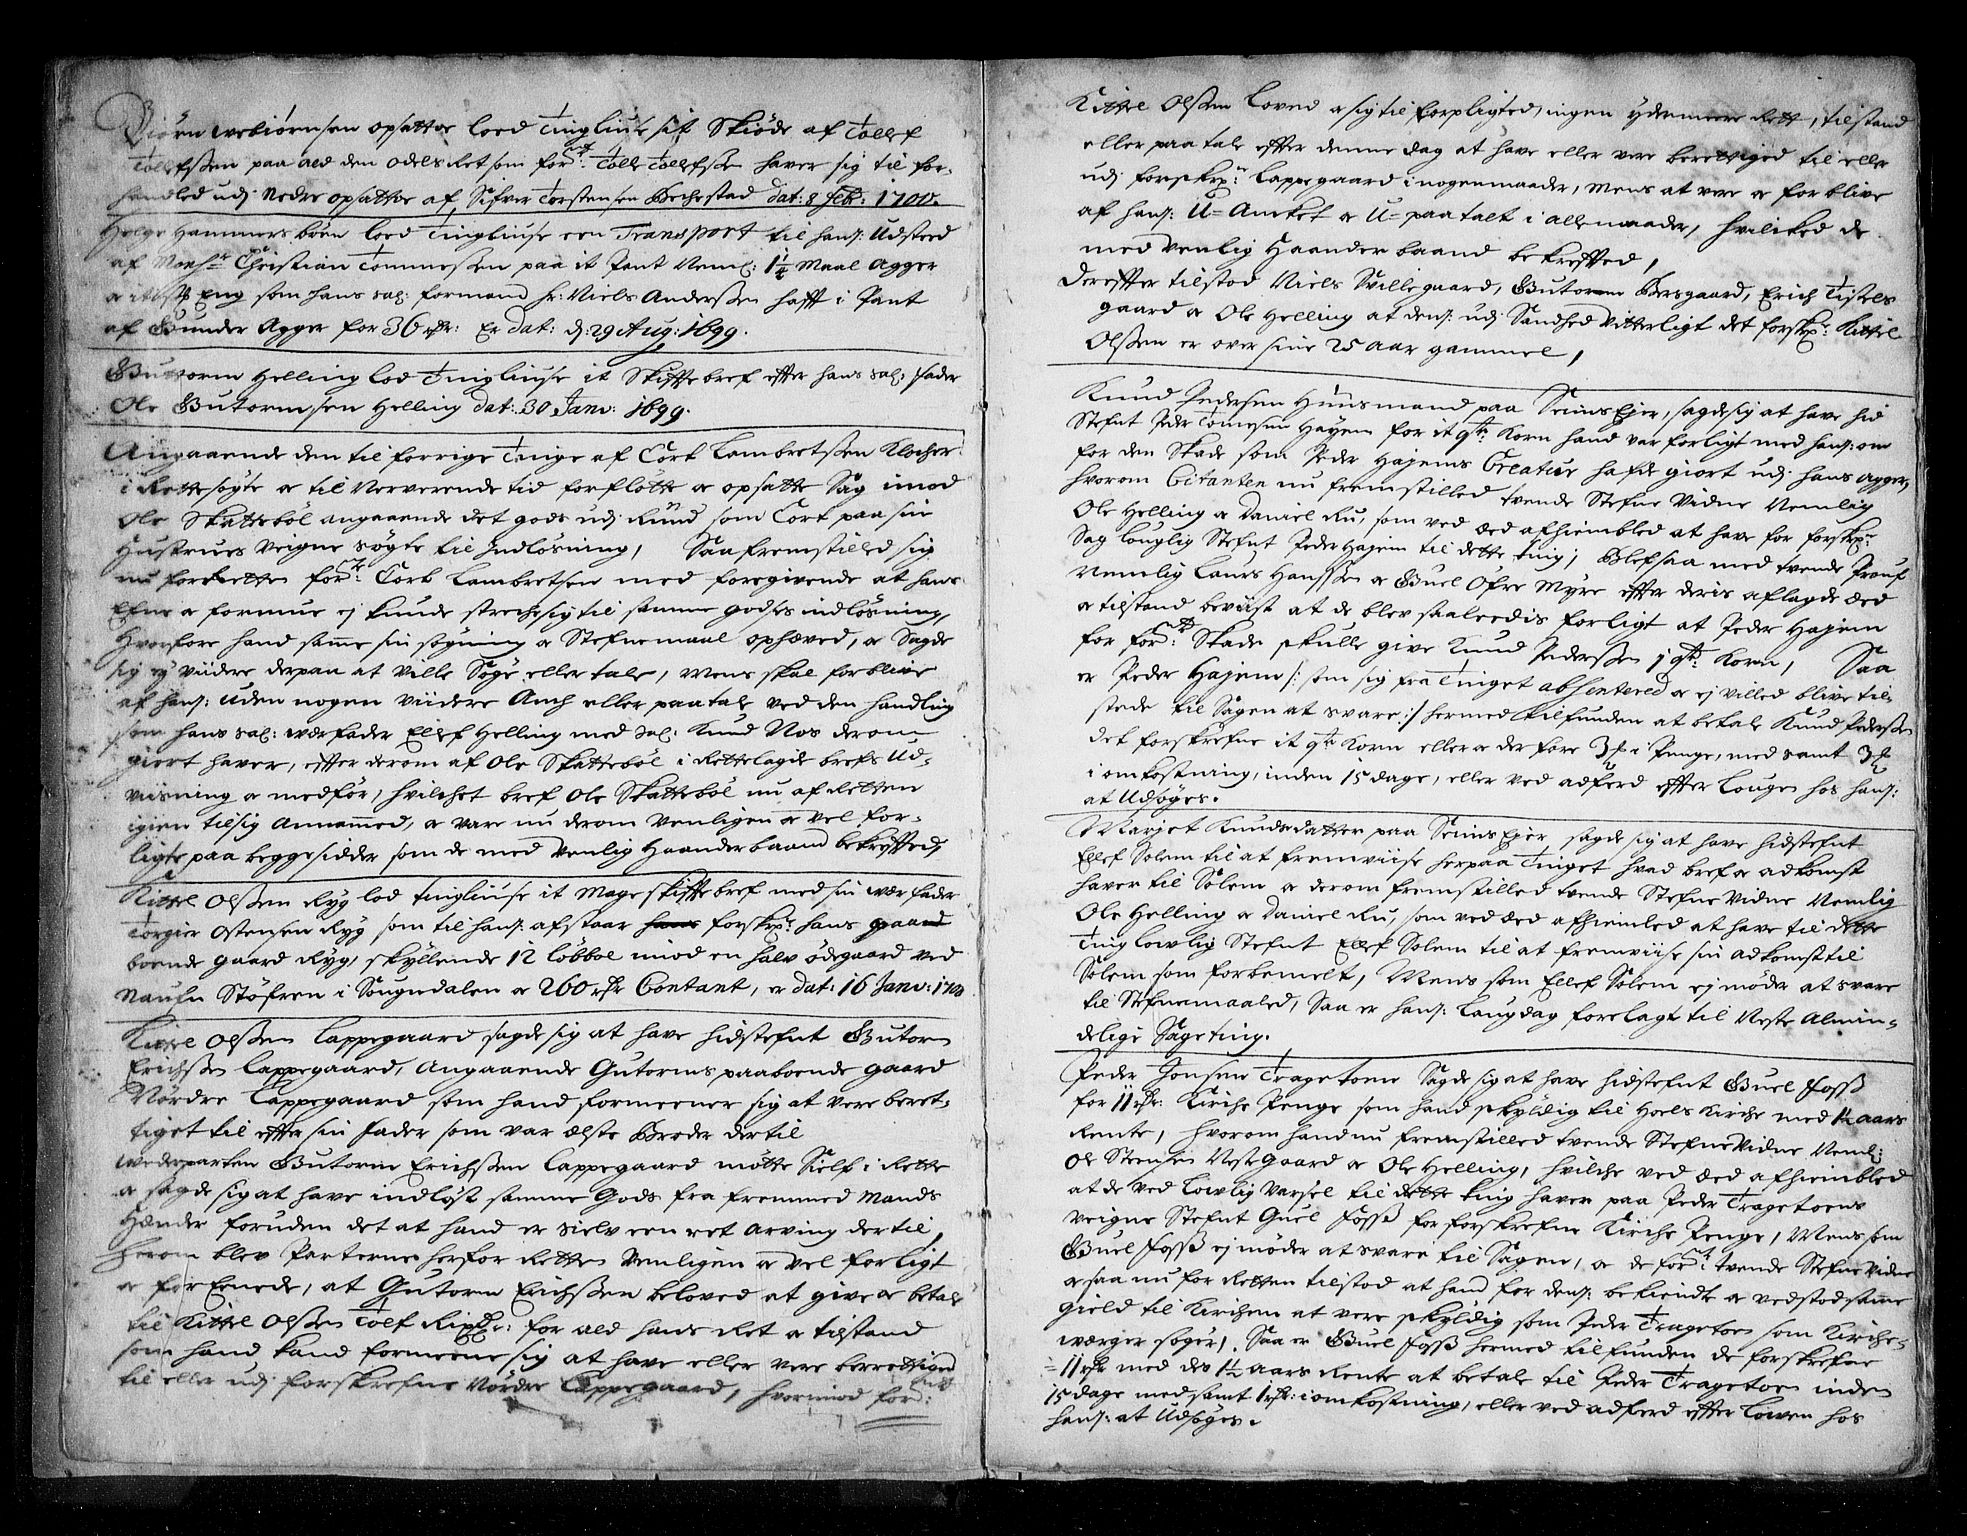 Biørn webiørnsen opsattoe loed Tingliuse sit Skiøde af Tollef
Tollefssen paa ald den odels Ret som ford: Tolle Tollefssen haver sig til for-
handled udj Nedre opsattoe af Sifver Torstensen Bechestad dat: 8 Febr: 1700.
Helge Hammersbøen loed Tingliuse een Transport til hans: udsteed
af Monsr Christian Tommessen paa it Pant Neml: 1 1/4 Maal Agger
a it stk Eng som hans sal: formand hr: Niels Anderssen hafft i Pant
af Gunder Agger for 36 rdr: Er dat: d: 29 Aug: 1699.
Gutorm Helling lod Tingliuse it Skifftebref effter hans sal: fader
Ole Gutormsen Helling dat: 30 Janv: 1699.
Angaaende den til forrige Tinge af Cort Lambretssen Klocher
i Rettesøgte a til Nerverende tid forflotte a opsatte Sag imod
Ole Skattebøl angaaende det gods udj Rund som Cort paa sin
Hustrues Veigne søgte til Indløsning, Saa fremstilled sig
nu for Retten ford: Cort Lambretsen med foregivende at hans
Efne a formue ej kunde strechesig til samme godses indløsning,
Hvorfore hand samme sin søgning a Stefnemaal ophæved, a Sagde
sig ej viidere derpaa at ville Søge eller tale, Mens skal forblive
af hans: uden nogen viidere Anch eller paatale ved den handling
som hans sal: værfader Ellef Helling med sal: Knud Nos derom
giort haver, effter derom af Ole Skattebøl i Rettelagde brefs Ud-
viisning a medfør, hvilchet bref Ole Skattebøl nu af Retten
igien til sig Annammed, a vare nu derom venligen a vel for-
ligte paa beggesidder som de med venlig Haanderbaand bekrefftede,
Kittel Olssen Ryg lod tingliuse it Mageskifftebref med sin værfader
Torgier Ostensen Ryg som til hans: afstaar forskrp: hans paa
boende gaard Ryg, skyllende 12 løbbol imod en halv ødegaard ved
Naufn Støfren i Sougnedalen a 260 rdr Contant, er dat: 16 Janv: 1700
Kittel Olssen Lappegaard sagde sig at have hidstefnt Gutorm
Erichssen Lappegaard, Angaaende Gutorms paaboende gaard
Nørdre Lappegaard som hand formeener sig at vere beret-
tiget til effter sin fader som var elste Broder dertil
wederparten Gutorm Erichssen Lappegaard møtte Sielf i Rette
a sagde sig at have indløst samme Gods fra fremmed Mands
Hænder foruden det at hand er sielv een ret Arving dertil,
herom blev Parterne her for Retten venligen a vel forligt
a forEenede, at Gutorm Erichssen beloved at give a betale
til Kittel Olssen Tolf Rixdr: for ald hans Ret a tilstand
som hand kand formeene sig at have eller vere berettiged
til eller udj forskrefne Nørdre Lappegaard, hvorimod ford:
Kittel Olssen Loved a sig til forpligted, ingen ydermeere Rett, tilstand
eller paatale effter denne dag at have eller vere berettiged til eller
udj forskrp: Lappegaard i nogenmaader, Mens at vere a forblive
af hans: U=Ancket a U=paatalt i allemaader, hvilcked de
med venlig Haanderbaand bekreffted,
Dereffter tilstod Niels Villegaard, Gutorm Bersgaard, Erich Tissels
gaard a Ole Helling at dens: udj Sandhed vitterligt det forskrp: Kittel
Olssen er over sine 25 aar gammel,
Knud Pedersen Huusmand paa Seims Ejer, sagde sig at have hid
Stefnt Peder Tomesen Hajem for it qtr: Korn hand var forligt med hans: om
for den Skade som Peder Hajems Creature hafde giort udj hans Agger,
hvorom Citanten nu fremstilled tvende Stefne Vidne Nemlig
Ole Helling a Daniel Ru, som ved æd afhiembled at have for forskrp:
Sag lovglig Stefnt Peder Hajem til dette ting; Blef saa med tvende Prouf
Nemlig Laurs Hanssen a Guel Ofre Myre effter deris aflagde æd
a tilstand beviist at de blev saaleedis forligt at Peder Hajem
for ford: Skade skulle give Knud Pederssen 1 qtr: Korn, Saa
er Peder Hajem /: som sig fra Tinget absentered a ej villed blive til
stede til Sagen at svare :/ hermed tilfunden at betale Knud Pederssen
det forskrefne it qtr Korn eller a derfore 3 s i Penge, med samt 3 s
i omkostning, inden 15 dage, eller ved adferd effter Lougen hos hans:
at Udsøges.
Marjet Knudsdatter paa Seims Ejer sagde sig at have hidstefnt
Ellef Solem til at fremviise her paa Tinget hvad bref a adkomst
haver til Solem a derom fremstilled tvende Stefne Vidne Nemlig
Ole Helling a Daniel Ru, som ved æd afhiemled at have til dette
Ting lovlig Stefnt Ellef Solem til at fremviise sin adkomst til
Solem som forbemelt, Mens som Ellef Solem ej møder at svare
til Stefnemaaled, Saa er hans: Laugdag forelagt til Neste Almin-
delige Sageting.
Peder Jonsen Tragetoen Sagde sig at have hidstefnt Guel Foss
for 11 rdr: Kirche Penge som hand skyldig til Hoels Kirche med 1 1/2 aars
Rente, hvorom hand nu fremstilled tvende Stefne Vidne Neml:
Ole Steensen Vestegaard a Ole Helling, hvilche ved æd afhiembled
at de ved Lovlig Varsel til dette ting haver paa Peder Tragetoens
veigne Stefnt Guel Foss for forskrefne Kirche Penge, Mens som
Guel Foss ej møder at svare til Sagen, a de ford: tvende Stefne Vidne
a saa nu for Retten tilstod at hand for dens: bekiendte a vedstod samme
Gield til Kirchen at vere skyldig som Peder Tragetoen som Kirche-
værger søger, Saa er Guel Foss hermed tilfunden de forskrefne
11 rdr med des 1 1/2 aars Rente at betale til Peder Tragetoen inden
15 dage medsamt 1 rdr: i omkostning, eller ved adferd effter Lowen hos
hans: at Udsøges.